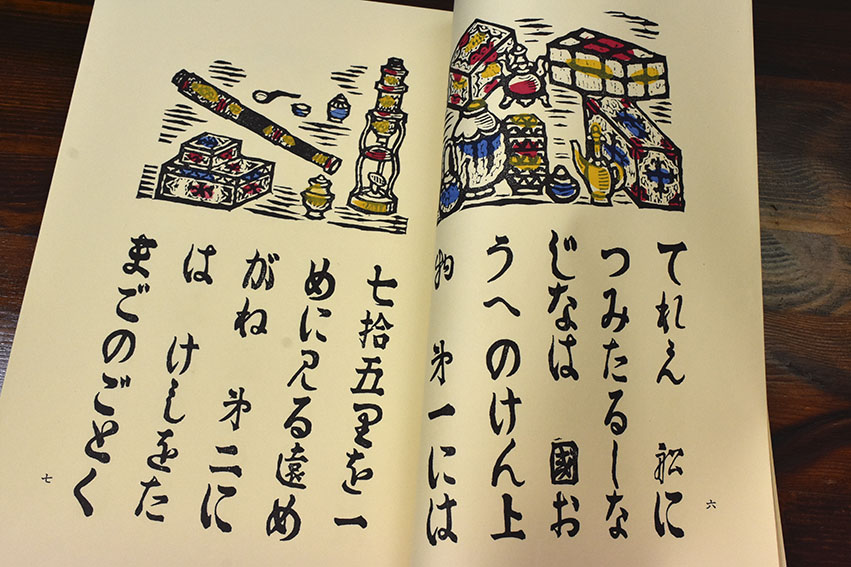 てれえん 舩に
つみたるしな
じなは 國お
うへのけん上
物 第一には
六
七拾五里を一
めに見る遠め
がね 第二に
は けしをた
まごのごとく
七